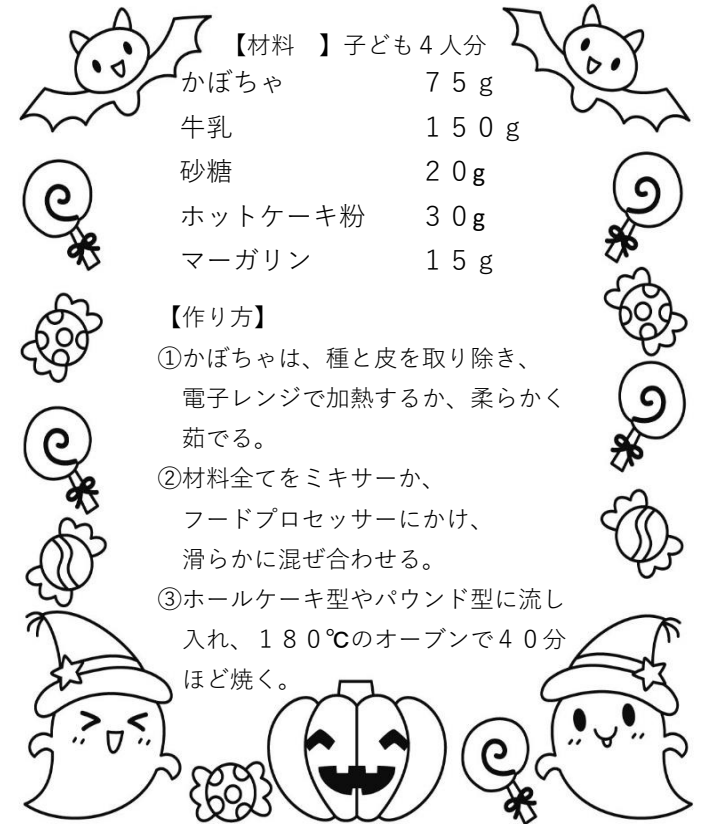 【材料　】子ども４人分
かぼちゃ　７５ｇ
牛乳　１５０ｇ
砂糖　２０g
ホットケーキ粉　３０g
マーガリン　１５ｇ
【作り方】
①かぼちゃは、種と皮を取り除き、
電子レンジで加熱するか、柔らかく
茹でる。
②材料全てをミキサーか、
フードプロセッサーにかけ、
滑らかに混ぜ合わせる。
③ホールケーキ型やパウンド型に流し
入れ、１８０℃のオーブンで４０分
ほど焼く。